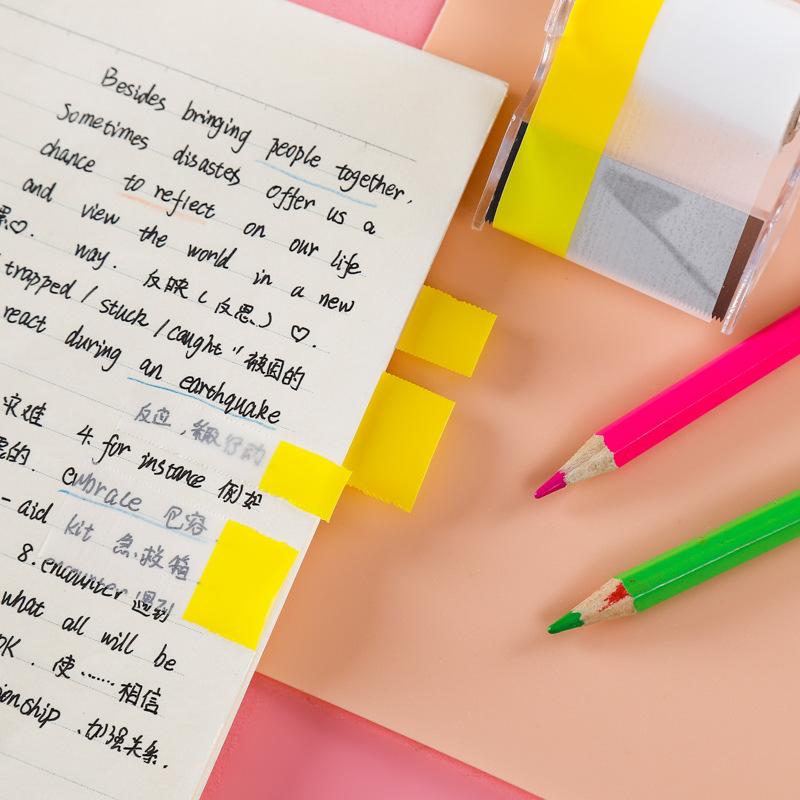 Besides bringing people together,
Sometimes disastes offer us a
chance to reflect on our life
and view the world in a new
思♡. way. 反映(反思) ♡.
trapped / stuck / caught " 被困的
react during an earthquake
反应,
灾难 4. for instance 例如
embrace 包容
- aid kit 急救箱
8. encounter 遇到
what all will be
OK. 使……相信
ionship .加强关系.